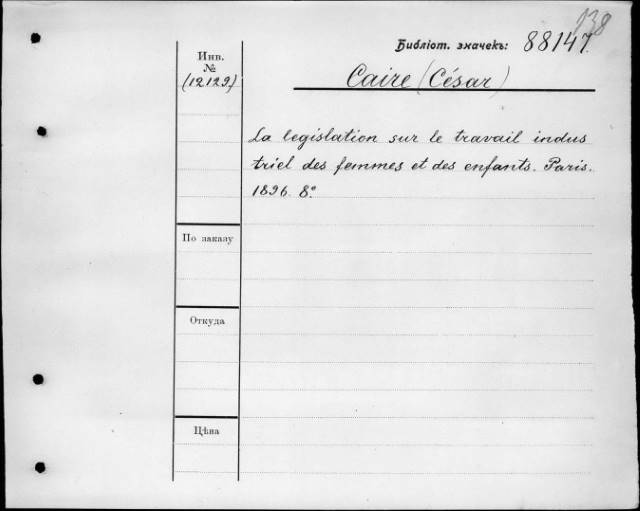 138
Библіот. значекъ: 88147.
Инв.
№
(12129)
Caire (César)
La legislation sur le travail indus
triel des femmes et des enfants. Paris.
1896. 8°.
По заказу
Откуда
Цѣна